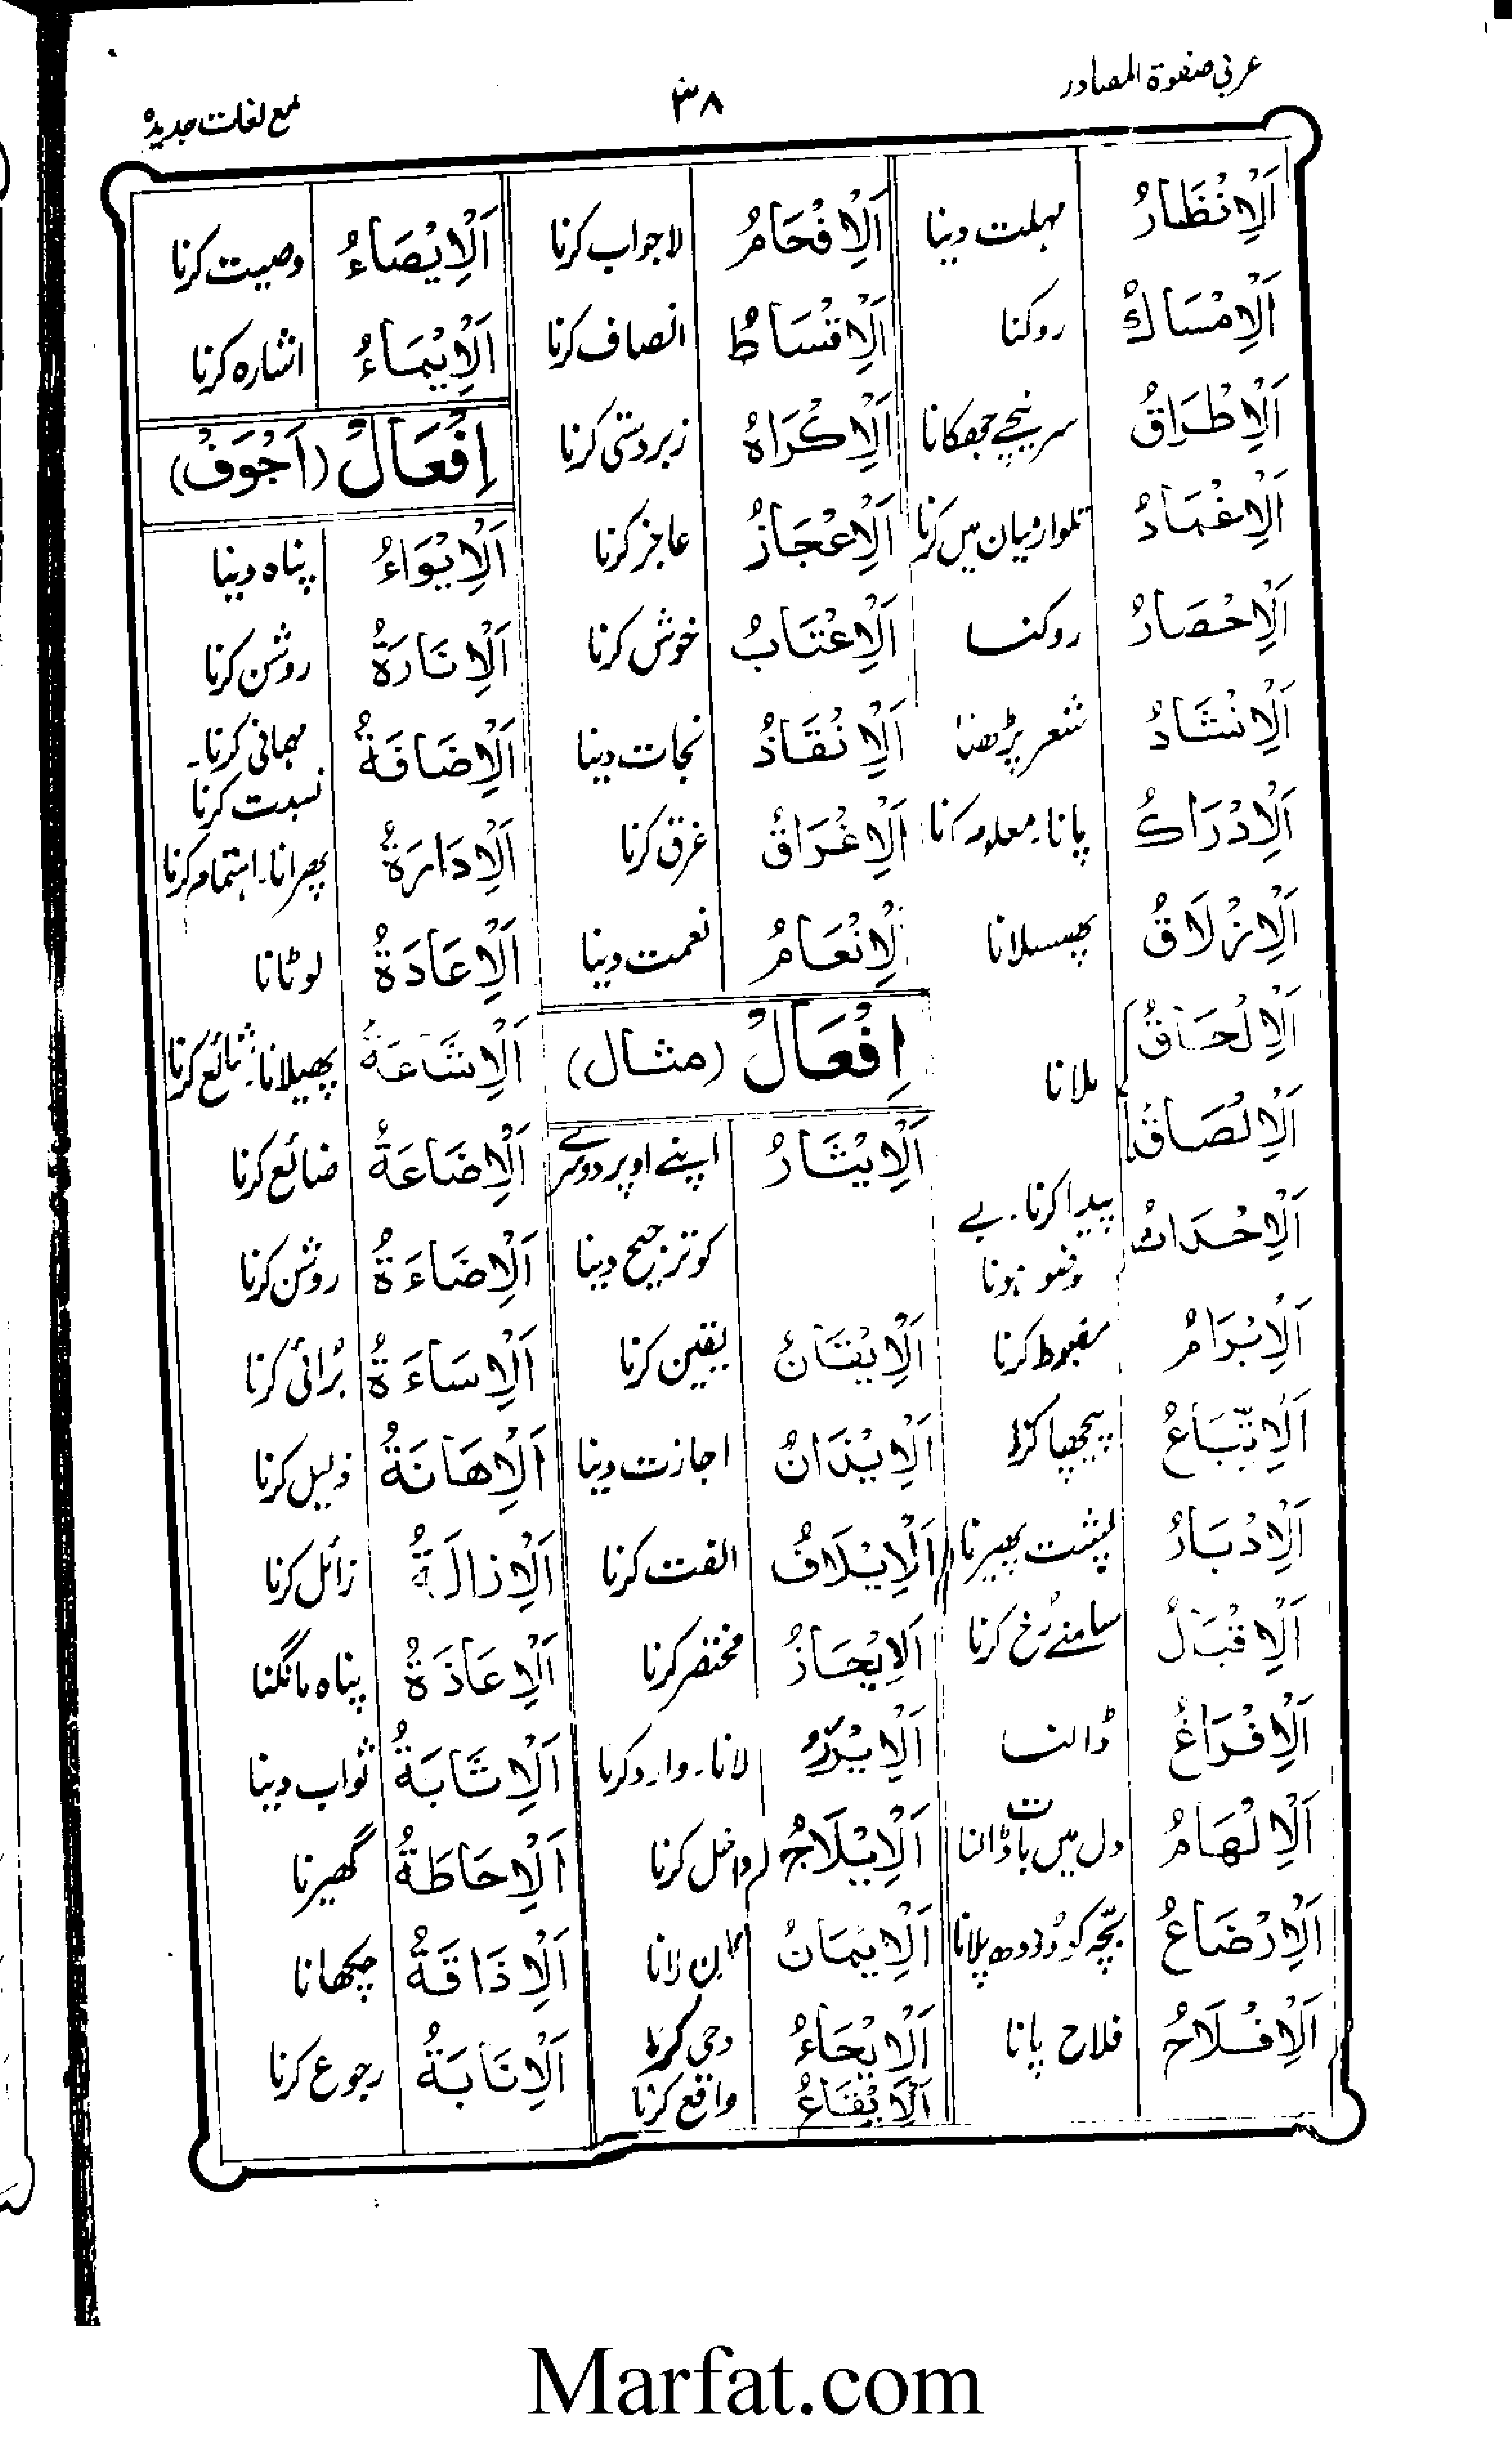 عربی صفوة المصادر
۳۸
مع لغات جدیدہ
اَلْاِنْظَارُ مہلت دینا
اَلْاِمْسَاكُ روکنا
اَلْاِطْرَاقُ سر نیچے جھکانا
اَلْاِغْمَادُ تلوار نیان میں کرنا
اَلْاِحْصَارُ روکنا
اَلْاِنْشَادُ شعر پڑھنا
اَلْاِدْرَاكُ پانا۔ معلوم کرنا
اَلْاِزْلَاقُ پھسلانا
اَلْاِلْحَاقُ
ملانا
اَلْاِلْصَاقُ
اَلْاِحْدَاثُ پیدا کرنا۔ بے
وضو ہونا
اَلْاِبْرَامُ مضبوط کرنا
اَلْاِتِّبَاعُ پیچھا کرنا
اَلْاِدْبَارُ پشت پھیرنا
اَلْاِقْبَالُ سامنے رُخ کرنا
اَلْاِفْرَاغُ ڈالنا
اَلْاِلْهَامُ دل میں بات ڈالنا
اَلْاِرْضَاعُ بچّہ کو دودھ پلانا
اَلْاِفْلَاحُ فلاح پانا
اَلْاِفْحَامُ لاجواب کرنا
اَلْاِقْسَاطُ انصاف کرنا
اَلْاِكْرَاهُ زبردستی کرنا
اَلْاِعْجَازُ عاجز کرنا
اَلْاِعْتَابُ خوش کرنا
اَلْاِنْقَاذُ نجات دینا
اَلْاِغْرَاقُ غرق کرنا
لْاِنْعَامُ نعمت دینا
اِفْعَالُ (مثال)
اَلْاِيْثَارُ اپنے اوپر دوسرے
کو ترجیح دینا
اَلْاِيْقَانُ یقین کرنا
اَلْاِيْذَانُ اجازت دینا
اَلْاِيْلَافُ الفت کرنا
اَلْاِيْجَازُ مختصر کرنا
اَلْاِيْرَدُ لانا۔ وارد کرنا
اَلْاِيْلَاجُ داخل کرنا
اَلْاِيْمَانُ لانا
اَلْاِيْحَاءُ وحی کرنا
اَلْاِيْقَاعُ واقع کرنا
اَلْاِيْصَاءُ وصیت کرنا
اَلْاِيْمَاءُ اشارہ کرنا
اِفْعَالُ (اَجْوَفُ)
اَلْاِيْوَاءُ پناہ دینا
اَلْاِنَارَةُ روشن کرنا
اَلْاِضَافَةُ مہمانی کرنا۔
نسبت کرنا
اَلْاِدَارَةُ پھرانا۔ اہتمام کرنا
اَلْاِعَادَةُ لوٹانا
اَلْاِشَاعَةُ پھیلانا۔ شائع کرنا
اَلْاِضَاعَةُ ضائع کرنا
اَلْاِضَاءَةُ روشن کرنا
اَلْاِسَاءَةُ بُرائی کرنا
اَلْاِهَانَةُ ذلیل کرنا
اَلْاِزَالَةُ زائل کرنا
اَلْاِعَاذَةُ پناہ مانگنا
اَلْاِثَابَةُ ثواب دینا
اَلْاِحَاطَةُ گھیرنا
اَلْاِذَاقَةُ چکھانا
اَلْاِنَابَةُ رجوع کرنا
Marfat.com